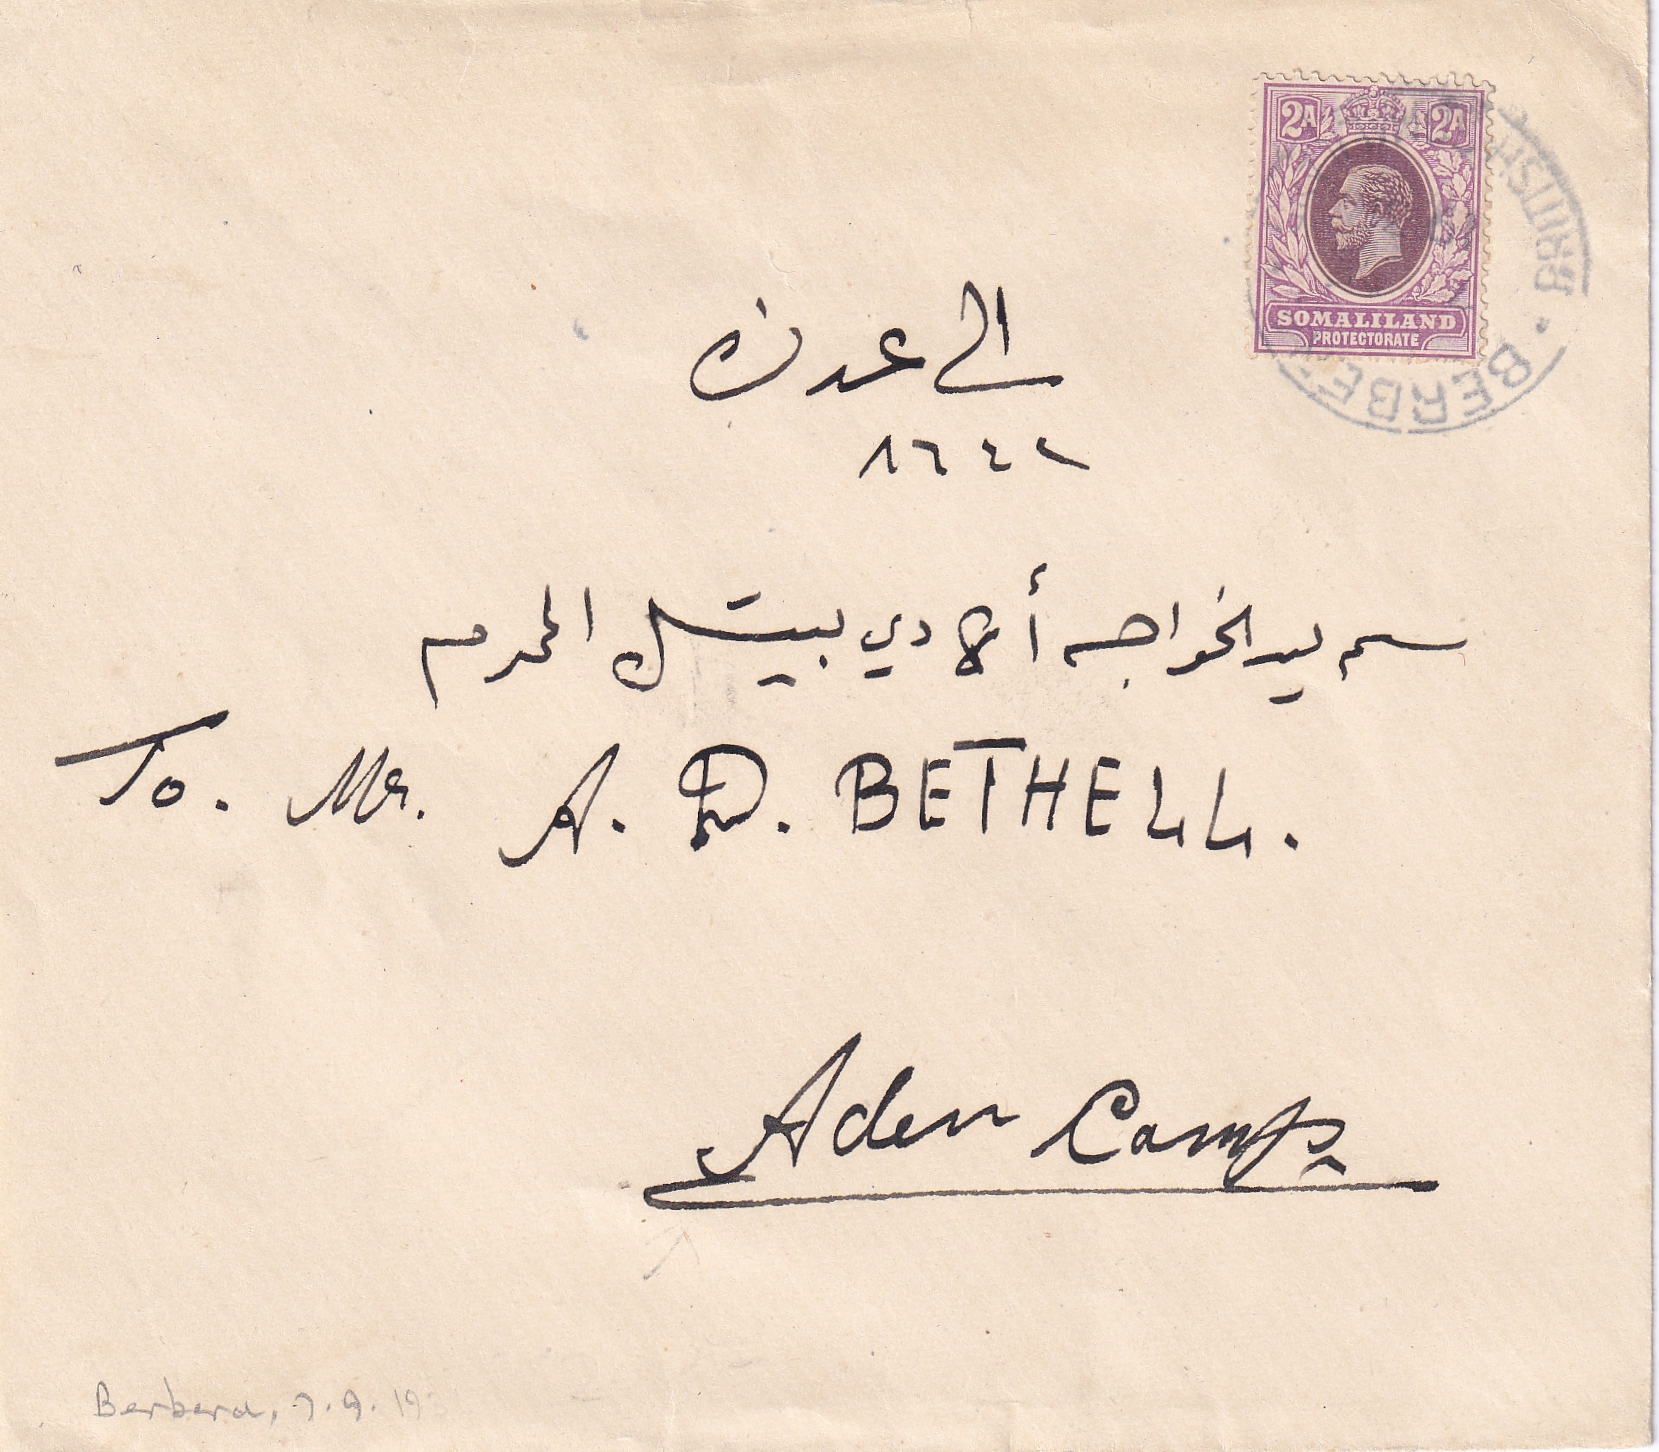 2A 2A
SOMALILAND
PROTECTORATE
BRITISH
BERBE
الى عدن
٨٦٤٢
يد الخواجه أ دي بيتل المحترم
To. Mr. A. D. BETHELL.
Aden Camp
Berbera, 7.9.19